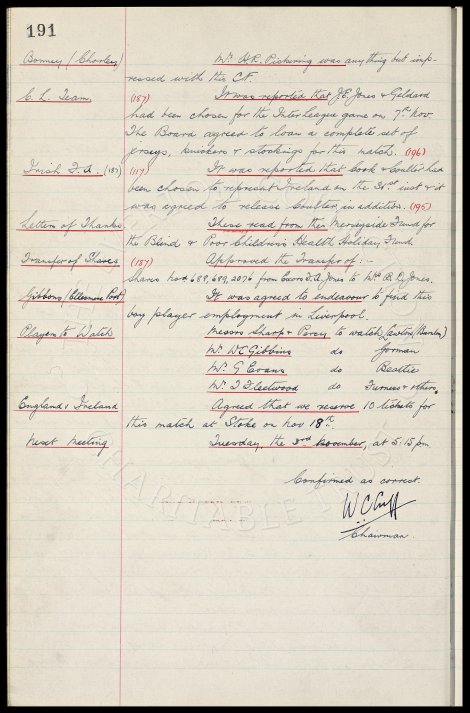 191
Bonney (Chorley) Mr. H.R. Pickering was anything but imp-
ressed with this C.F.
C. L. Team. (187) It was reported that J.E. Jones & Geldard
had been chosen for the Inter League game on 7th Nov.
The Board agreed to loan a complete set of
jerseys, knickers & stockings for this match. (196)
Irish F.A. (187) (117) It was reported that Cook & Coulter had
been chosen to represent Ireland on the 31st inst & it
was agreed to release Coulter, in addition. (195)
Letters of Thanks These read from the Merseyside Fund for
the Blind & Poor Children's Health Holiday Fund.
Transfer of Shares (187) Approved the Transfer of:-
Shares nos 688, 689, 2076 from Exors to Mr. R. Jones.
Gibbons (Ellesmere Port) It was agreed to endeavour to find this
boy player employment in Liverpool.
Players to Watch Messrs Sharp & Percy to watch Lawton (Burnley)
Mr. W C Gibbins do Gorman
Mr. G Evans do Beattie
Mr. T Fleetwood do Furness & others.
England v Ireland Agreed that we reserve 10 tickets for
this match at Stoke on Nov 18th.
Next Meeting Tuesday, the 3rd November, at 5.15 pm
Confirmed as correct.
W C Cuff
Chairman.
CHARITABLE